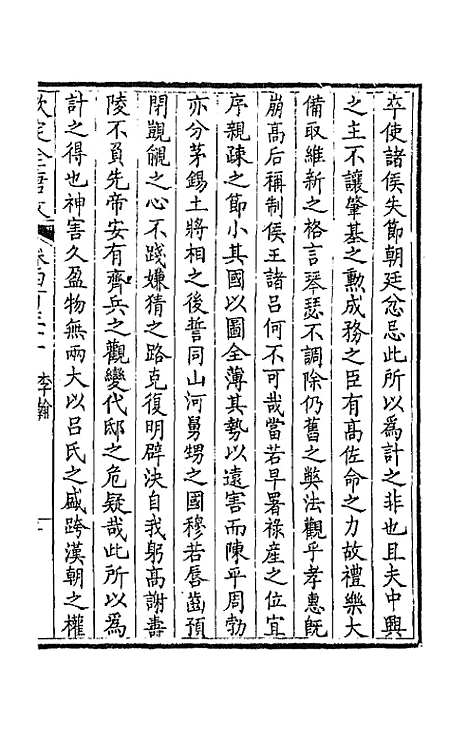 卒使諸侯失節朝廷忿忌此所以為計之非也且夫中興
之主不讓肇基之勲成務之臣有高佐命之力故禮樂大
備取維新之格言琴瑟不調除仍舊之獘法觀乎孝惠旣
崩高后稱制侯王諸呂何不可哉當若早署祿産之位宜
序親疎之節小其國以圖全薄其勢以遠害而陳平周勃
亦分茅錫土將相之後誓同山河舅甥之國穆若唇齒預
閉觀覦之心不踐嫌猜之路克復明辟決自我躬高謝壽
陵不負先帝安有齊兵之觀變代邸之危疑哉此所以為
計之得也神害久盈物無兩大以呂氏之盛跨漢朝之權
欽定全唐文
李翰